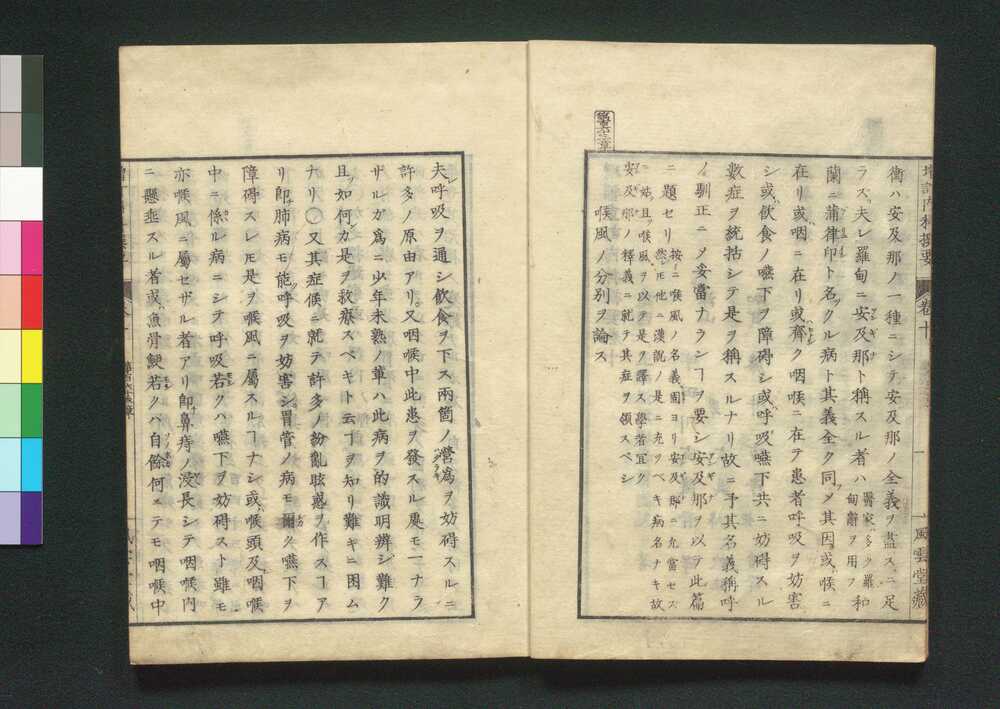 増訂内科撰要 卷十 一 風雲堂藏
衞ハ安及那ノ一種ニシテ安及那ノ全義ヲ盡スニ足
ラス夫レ羅甸ニ安及那ト稱スル者ハ醫家多ク羅甸辭ヲ用フ和
蘭ニ蒲律印ト名クル病ト其義全ク同メ其因或ハ喉ニ
在リ或ハ咽ニ在リ或ハ齊ク咽喉ニ在テ患者呼吸ヲ妨害
シ或ハ飲食ノ嚥下ヲ障碍シ或ハ呼吸嚥下共ニ妨碍スル
數症ヲ統括シテ是ヲ稱スルナリ故ニ予其名義稱呼
ノ馴正ニメ妥當ナランヿヲ要シ安及那ヲ以テ此篇
ニ題セリ按ニ喉風ノ名義固ヨリ安及那ニ允當セス然レ𪜈他ニ漢説ノ是ニ充ツヘキ病名ナキ故
ニ姑且ク喉風ヲ以テ是ヲ譯ス學者宜ク安及那ノ釋義ニ就テ其症ヲ領スベシ
喉風ノ分別ヲ論ス
夫レ呼吸ヲ通シ飲食ヲ下ス兩箇ノ營為ヲ妨碍スルニ
許多ノ原由アリ又咽喉中此患ヲ發スル處モ一ナラ
ザルガ爲ニ少年未熟ノ輩ハ此病ヲ的識明辨シ難ク
且ツ如何カ是ヲ救療スベキト云ヿヲ知リ難キニ困ム
ナリ○又其症候ニ就テ許多ノ紛亂眩惑ヲ作スヿア
リ即チ肺病モ能呼吸ヲ妨害シ胃管ノ病モ爾ク嚥下ヲ
障碍スレ𪜈是ヲ喉風ニ屬スルヿナシ或ハ喉頭及咽喉
中ニ係ル病ニシテ呼吸若クハ嚥下ヲ妨碍スト雖モ
亦喉風ニ屬セザル者アリ即鼻痔ノ浸長シテ咽喉内
ニ懸垂スル者或ハ魚骨鯁若クハ自餘何ニテモ咽喉中